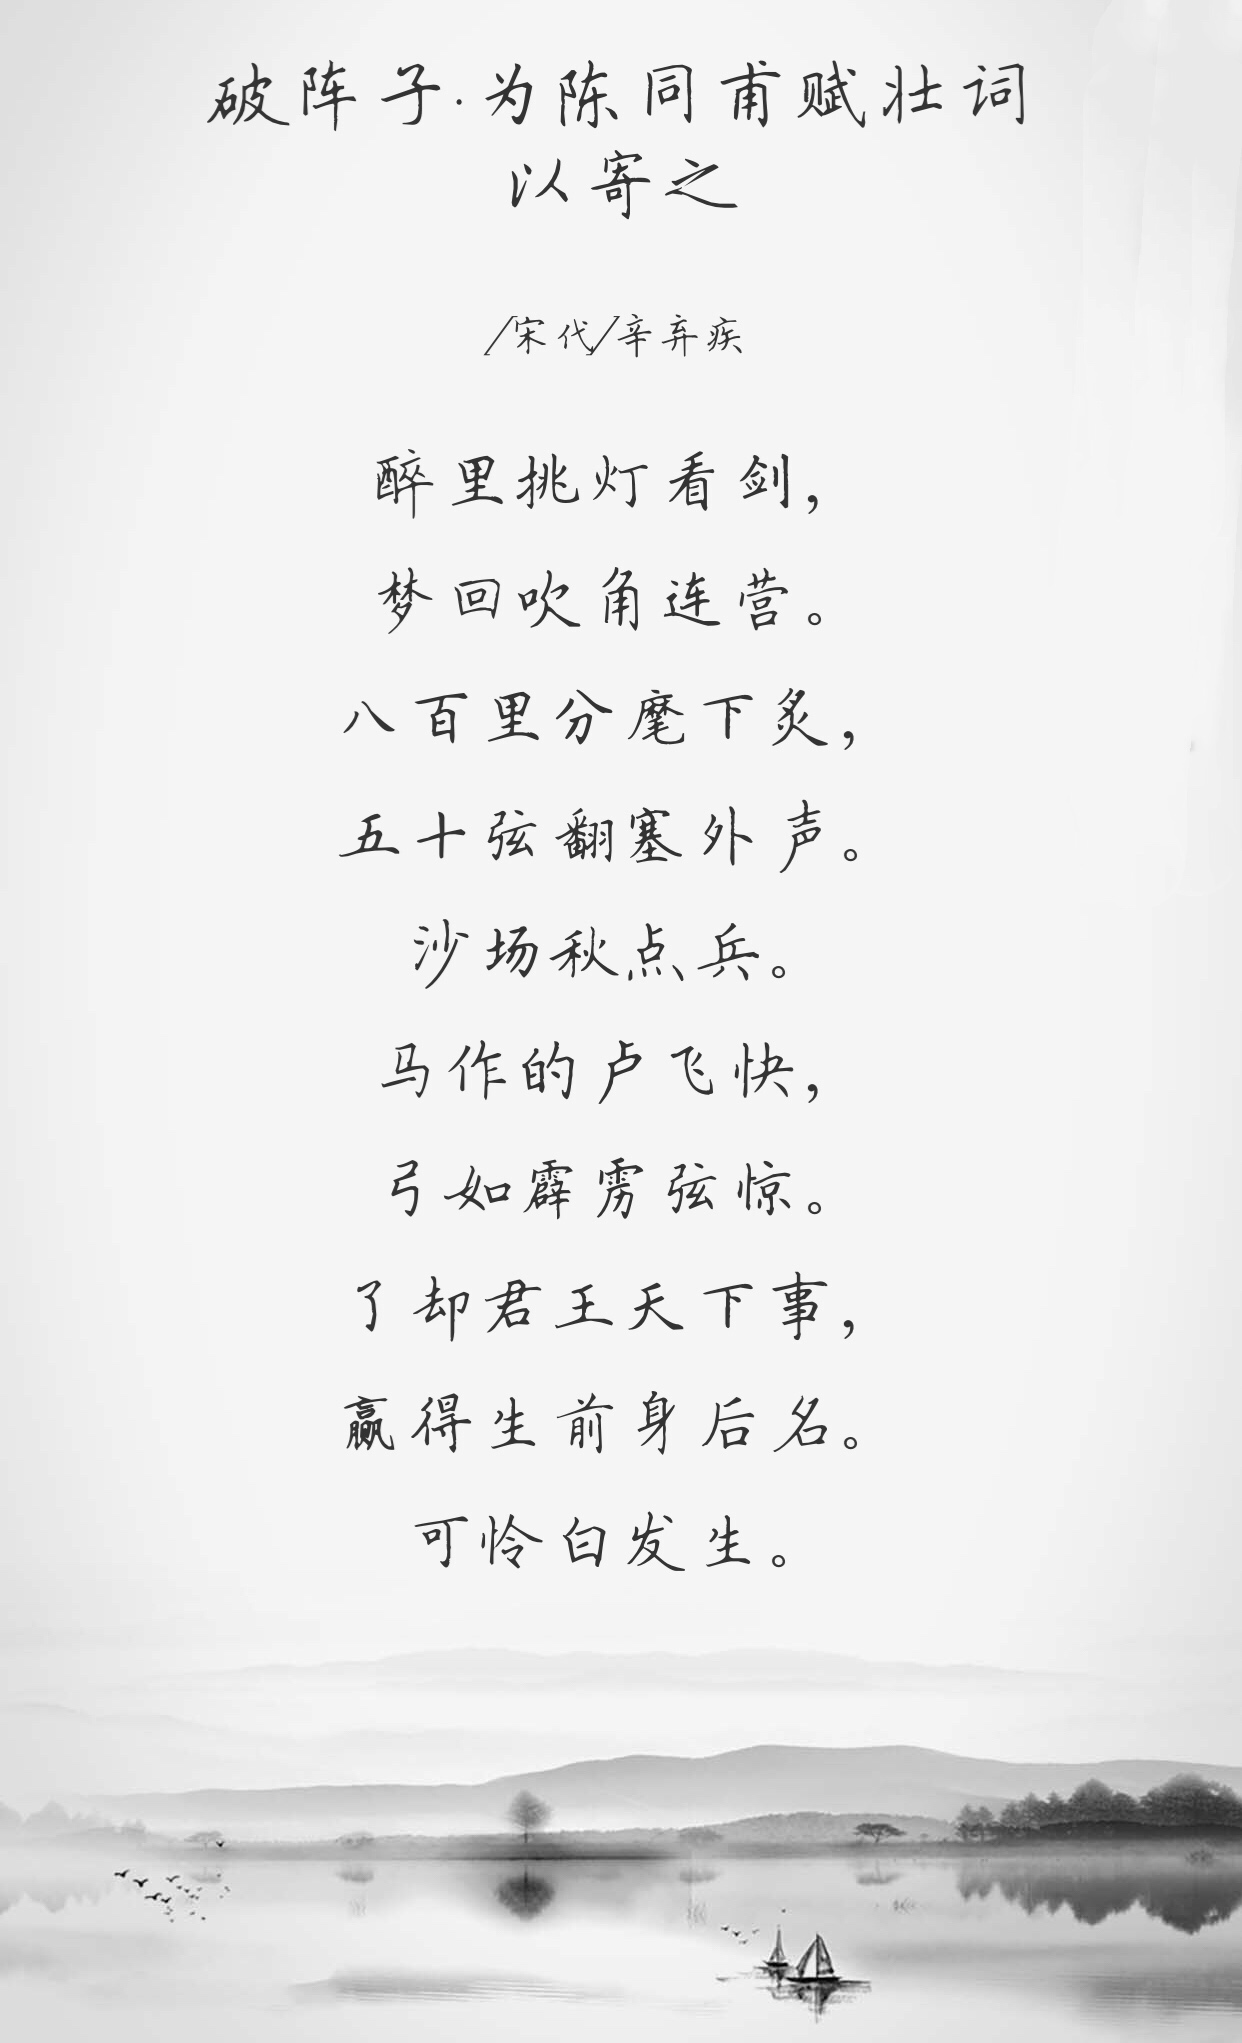 破阵子·为陈同甫赋壮词
以寄之
/宋代/辛弃疾
醉里挑灯看剑，
梦回吹角连营。
八百里分麾下炙，
五十弦翻塞外声。
沙场秋点兵。
马作的卢飞快，
弓如霹雳弦惊。
了却君王天下事，
赢得生前身后名。
可怜白发生。